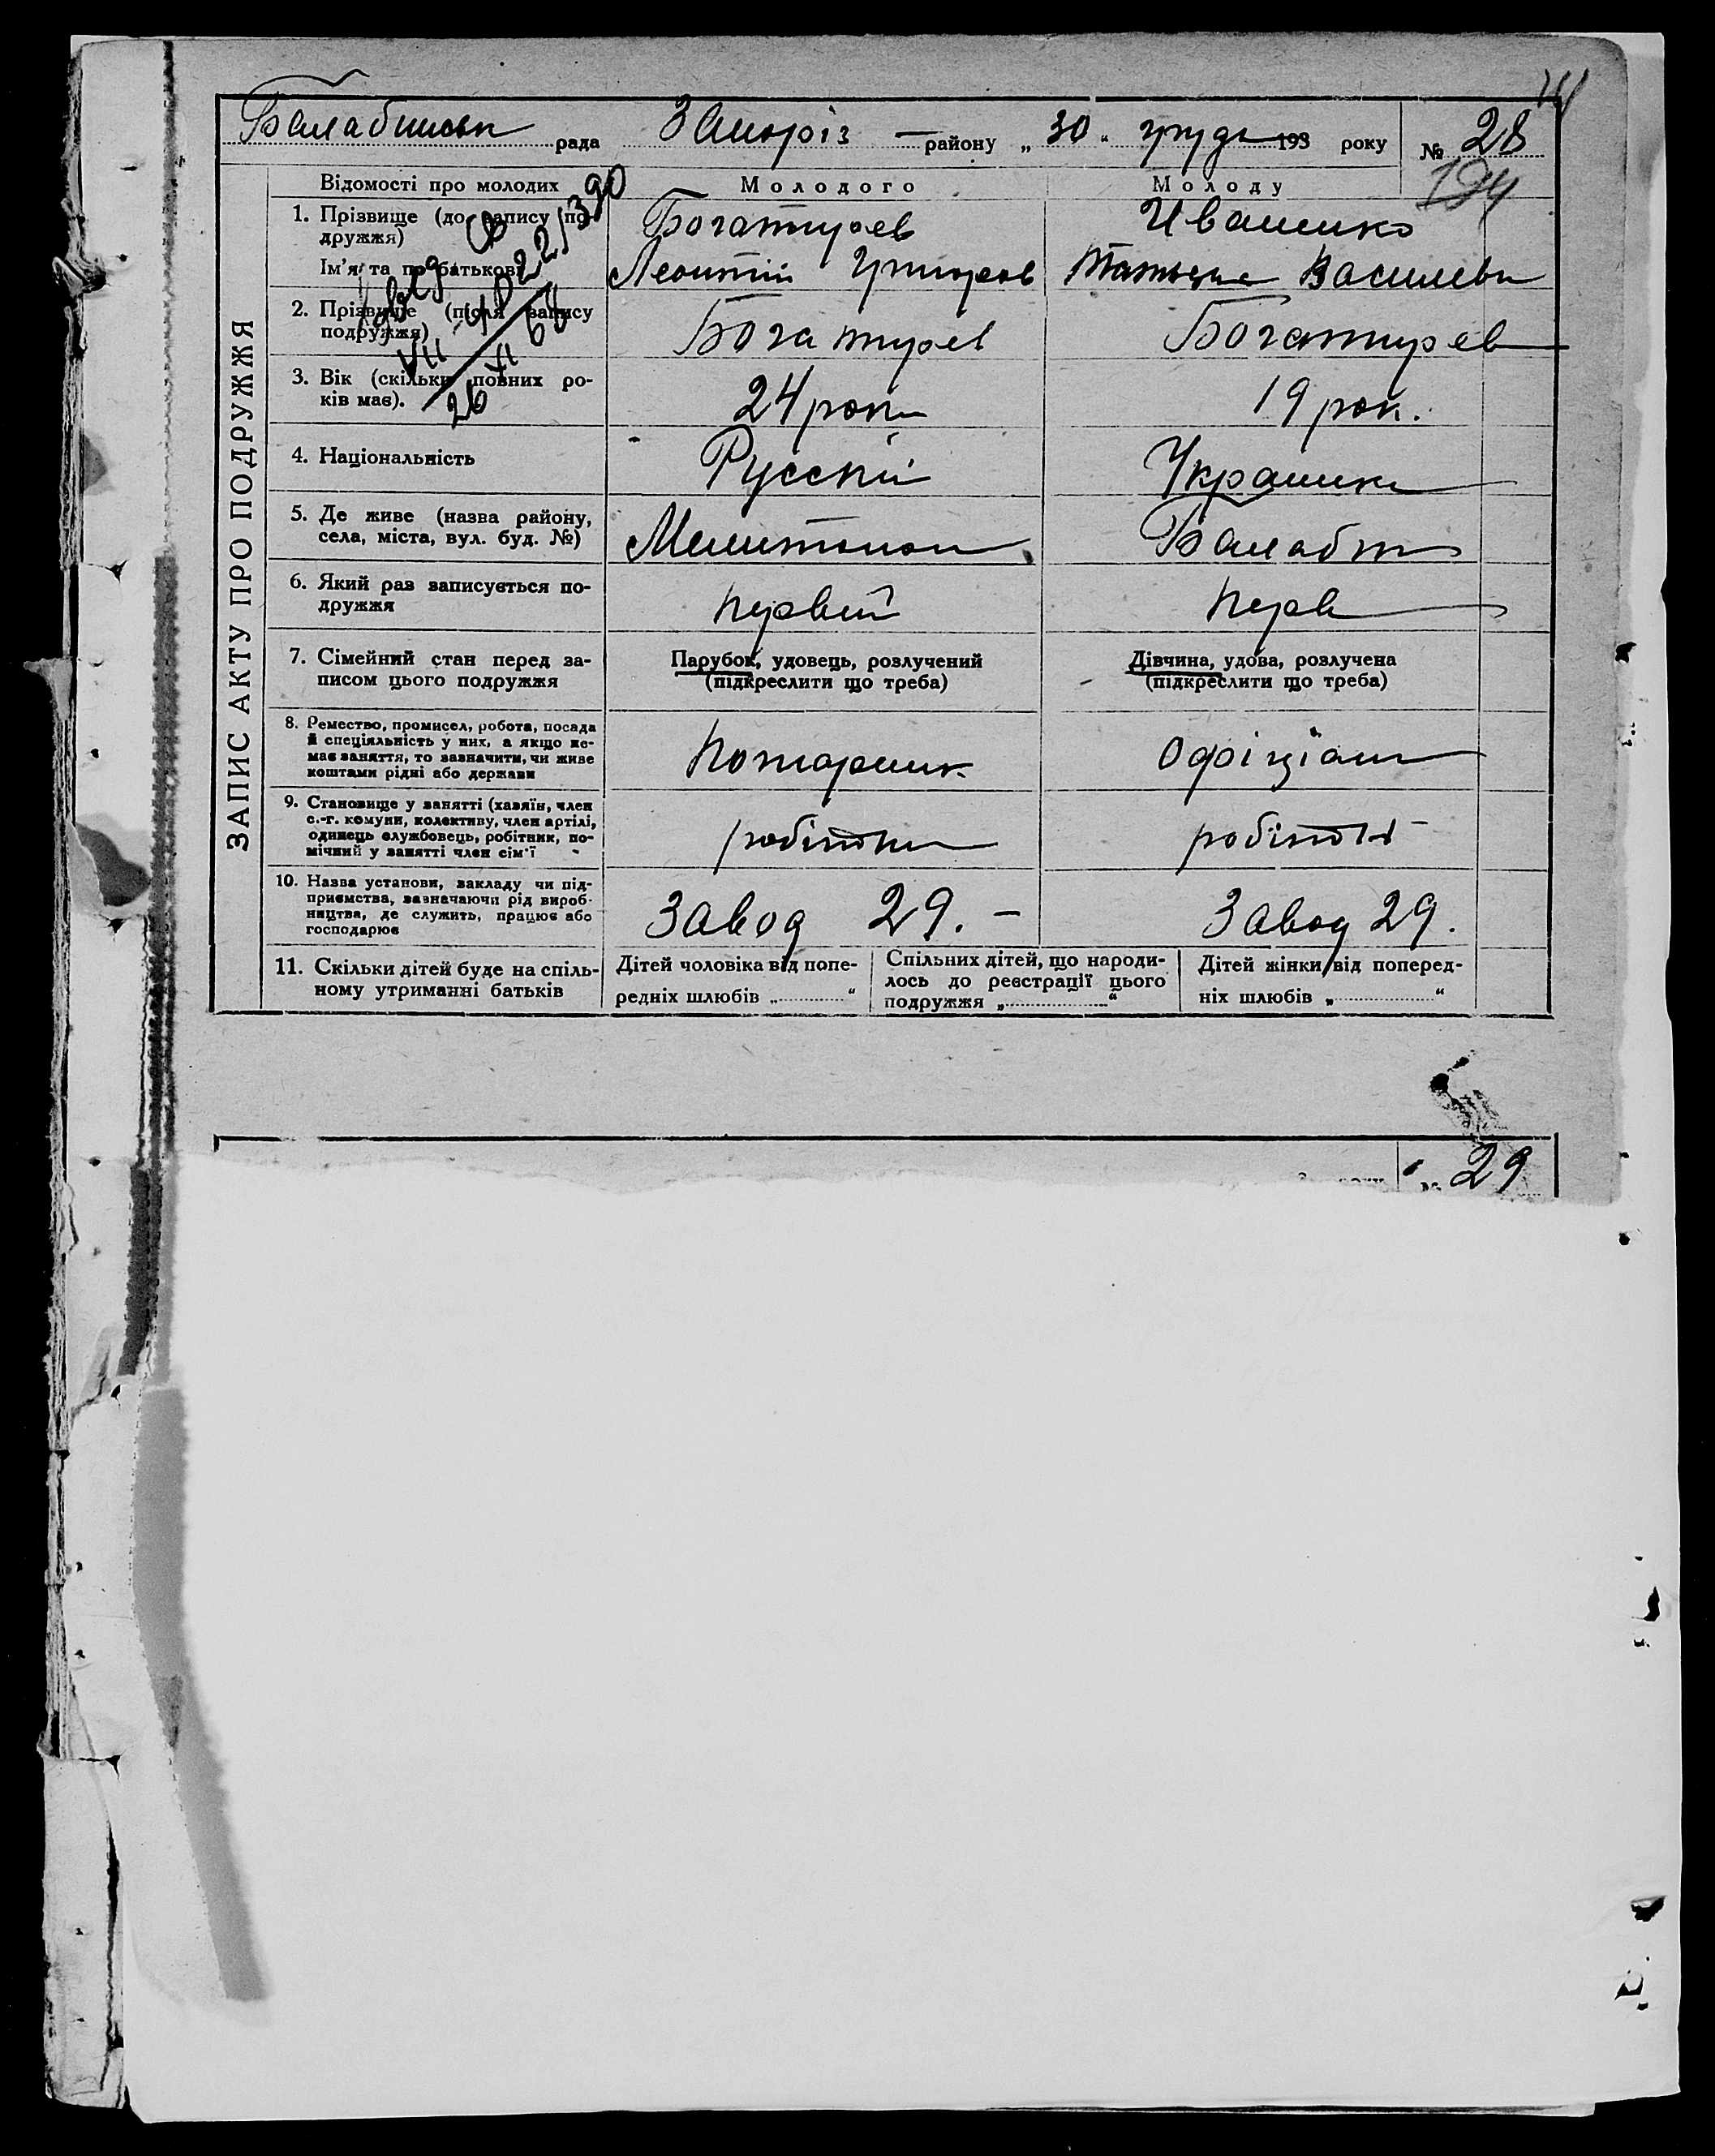 Балабинськ рада Запоріз — району „30“ грудь 193 року № 28
194
Відомості про молодих Молодого Молоду
1. Прізвище (до запису по-
дружжя) Богатирев Ивашико
Ім'я та по батькові Леонтій Григоров Татьяна Василевн
2. Прізвище (після запису
подружжя) Богатирев Богатирев
3. Вік (скільки повних ро-
ків має). 24 роки 19 рок.
4. Національність Русскій Украинка
5. Де живе (назва району,
села, міста, вул. буд. №) Мелитополь Балабін
6. Який раз записується по-
дружжя первий перв
7. Сімейний стан перед за-
писом цього подружжя
Парубок, удовець, розлучений
(підкреслити що треба)
Дівчина, удова, розлучена
(підкреслити що треба)
8. Ремество, промисел, робота, посада
й спеціяльність у них, а якщо не-
має заняття, то зазначити, чи живе
коштами рідні або держави
Пожарник Офіціан
9. Становище у занятті (хазяїн, член
с.-г. комуни, колективу, член артілі,
одинець службовець, робітник, по-
мічний у занятті член сім'ї
робітни робітн
10. Назва установи, закладу чи під-
приємства, зазначаючи рід вироб-
ництва, де служить, працює або
господарює
Завод 29. — Завод 29.
11. Скільки дітей буде на спіль-
ному утриманні батьків
Дітей чоловіка від попе-
редніх шлюбів „ “
Спільних дітей, що народи-
лось до реєстрації цього
подружжя „ “
Дітей жінки від поперед-
ніх шлюбів „ “
ЗАПИС АКТУ ПРО ПОДРУЖЖЯ
№ 29